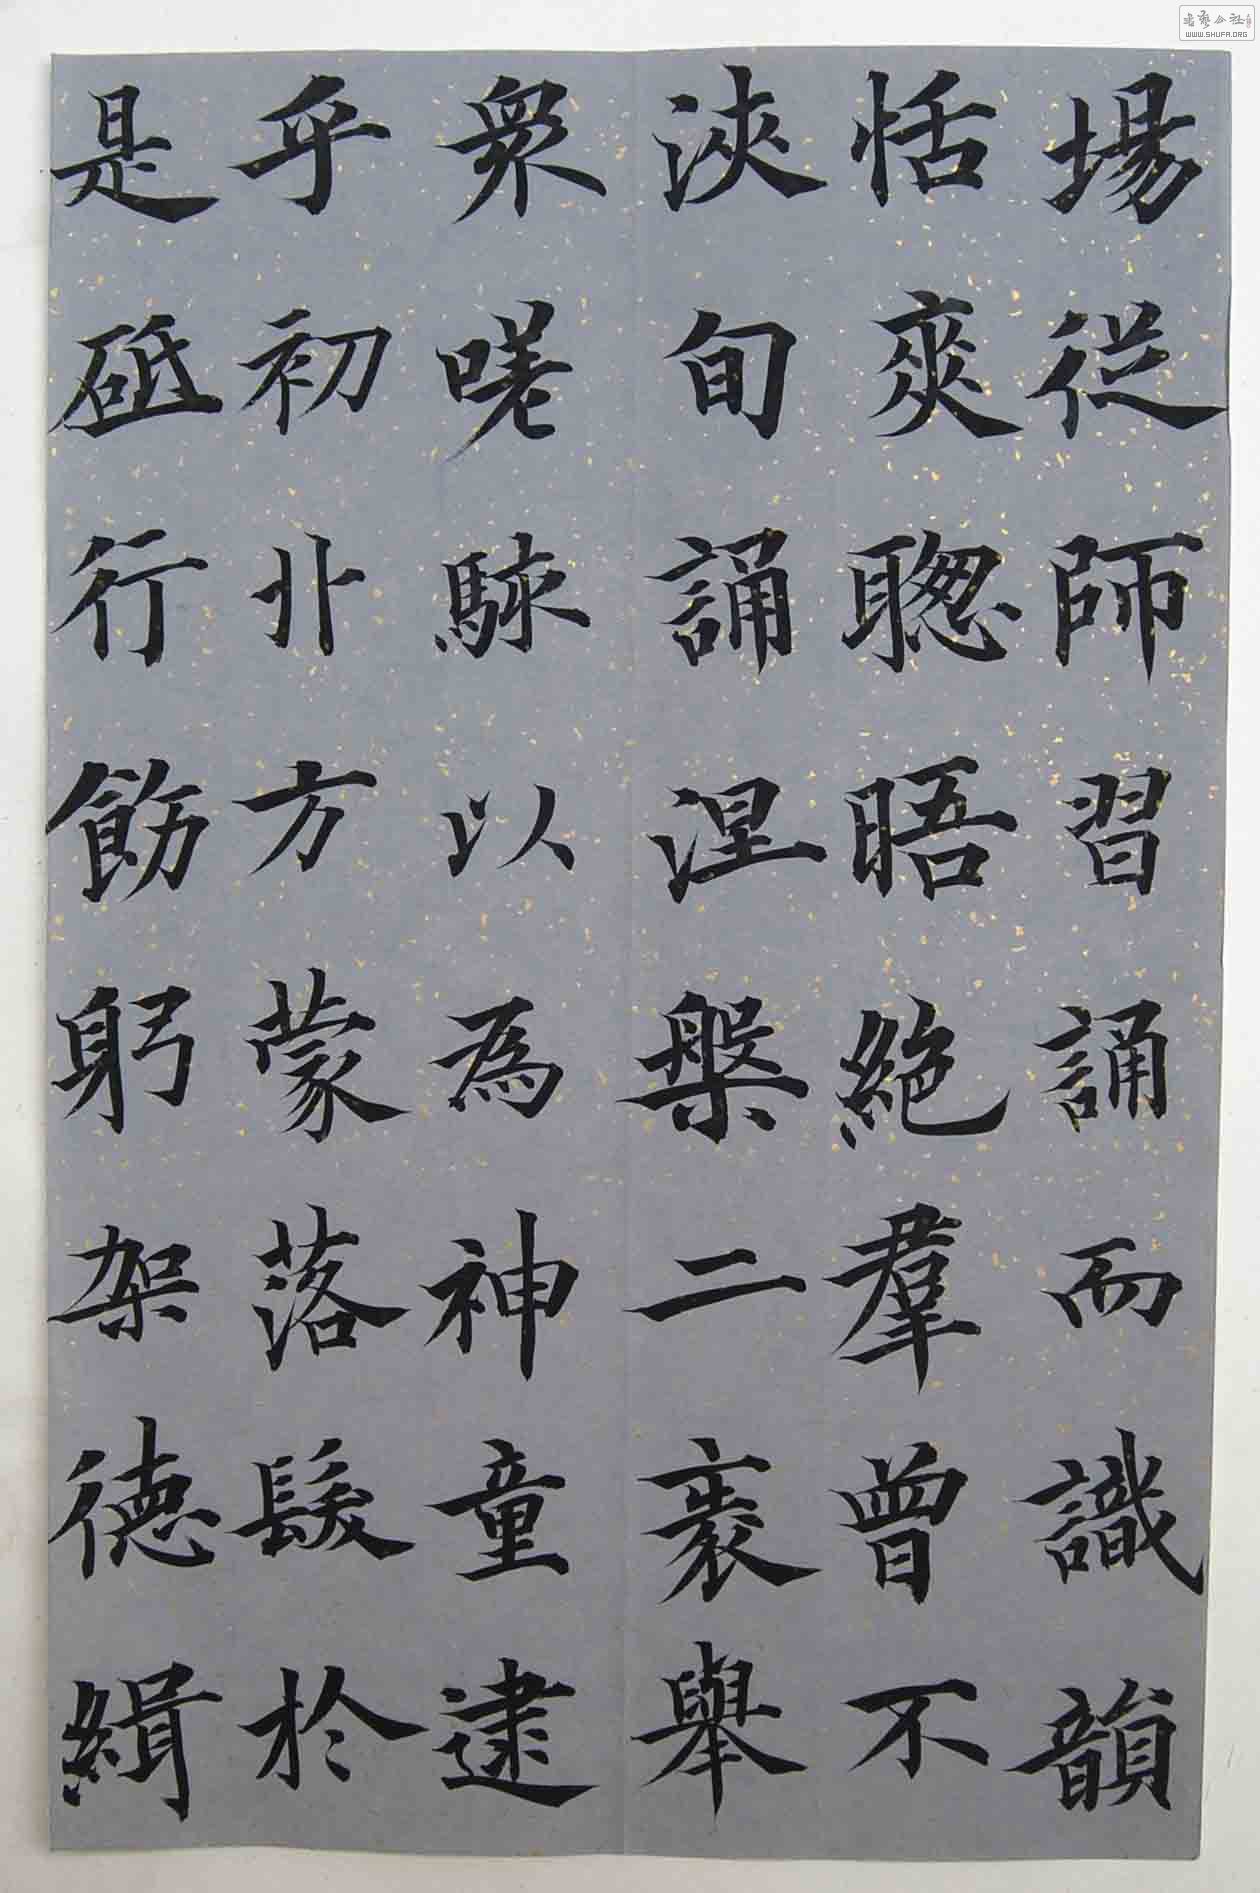 場從師習誦而識韻
恬爽聦晤絶羣曾不
浹旬誦涅槃二袠舉
衆嗟駭以為神童逮
乎初卝方蒙落髮於
是砥行飭躬架德緝
书艺公社
WWW.SHUFA.ORG